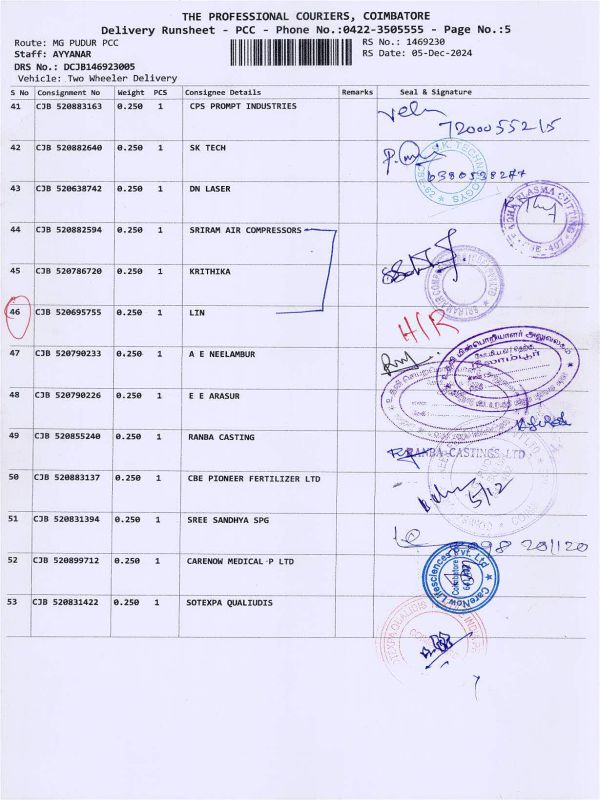 THE PROFESSIONAL COURIERS, COIMBATORE
Delivery Runsheet - PCC - Phone No.:0422-3505555 - Page No.:5
Route: MG PUDUR PCC RS No.: 1469230
Staff: AYYANAR RS Date: 05-Dec-2024
DRS No.: DCJB146923005
Vehicle: Two Wheeler Delivery
S No Consignment No Weight PCS Consignee Details Remarks Seal & Signature
41 CJB 520883163 0.250 1 CPS PROMPT INDUSTRIES
42 CJB 520882640 0.250 1 SK TECH
43 CJB 520638742 0.250 1 DN LASER
44 CJB 520882594 0.250 1 SRIRAM AIR COMPRESSORS
45 CJB 520786720 0.250 1 KRITHIKA
46 CJB 520695755 0.250 1 LIN
H/R
47 CJB 520790233 0.250 1 A E NEELAMBUR
48 CJB 520790226 0.250 1 E E ARASUR
49 CJB 520855240 0.250 1 RANBA CASTING
RANBA CASTINGS LTD
50 CJB 520883137 0.250 1 CBE PIONEER FERTILIZER LTD
5/12
51 CJB 520831394 0.250 1 SREE SANDHYA SPG
52 CJB 520899712 0.250 1 CARENOW MEDICAL P LTD
CareNow Lifesciences Pvt. Ltd
Coimbatore
53 CJB 520831422 0.250 1 SOTEXPA QUALIUDIS